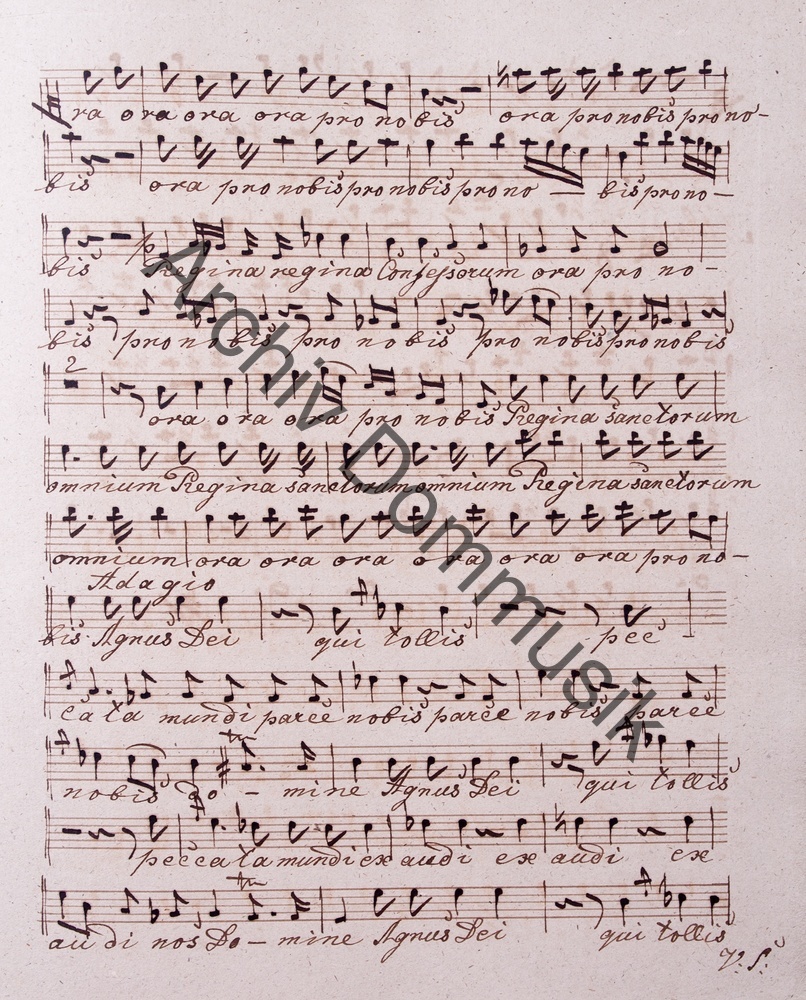 ra ora ora ora pro nobis ora pro nobis pro no-
bis ora pro nobis pro nobis pro no — bis pro no-
bis Regina regina Confessorum ora pro no-
bis pro nobis pro nobis pro nobis pro nobis
2
ora ora ora pro nobis Regina sanctorum
omnium Regina sanctorum omnium Regina sanctorum
omnium ora ora ora ora ora ora pro no-
Adagio
bis Agnus Dei qui tollis pec-
cata mundi parce nobis parce nobis parce
nobis Do - mine Agnus Dei qui tollis
peccata mundi exaudi exaudi ex
audi nos Do - mine Agnus Dei qui tollis
V: S:
Archiv Dommusik